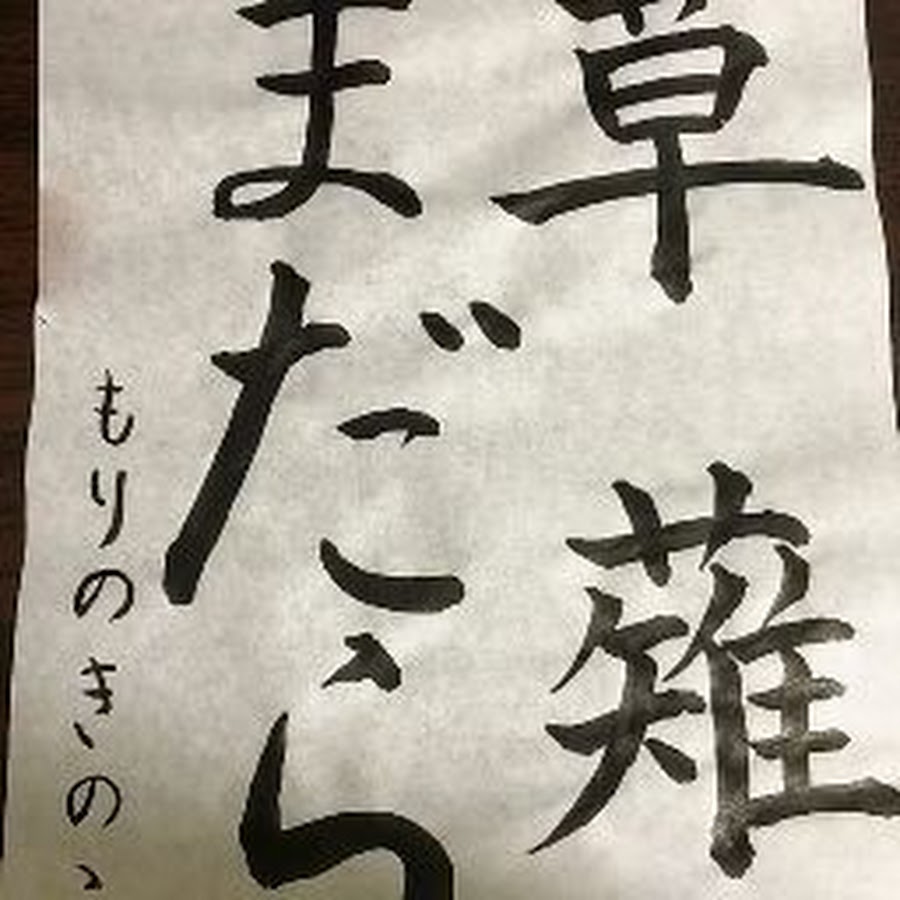 草薙
まだら
もりのきの